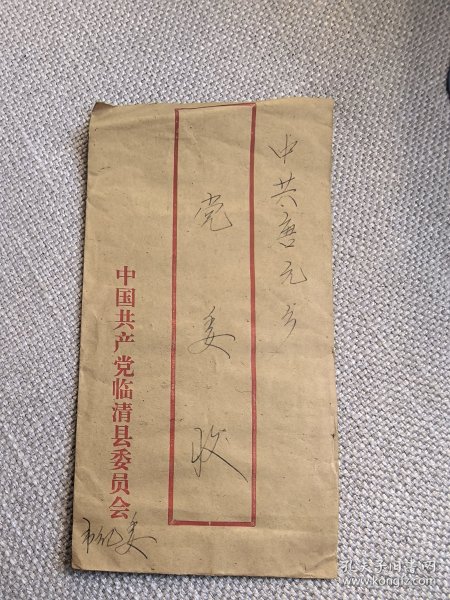 中共唐元乡
党委收
中国共产党临清县委员会
市纪委
孔夫子旧书网
www.kongfz.com